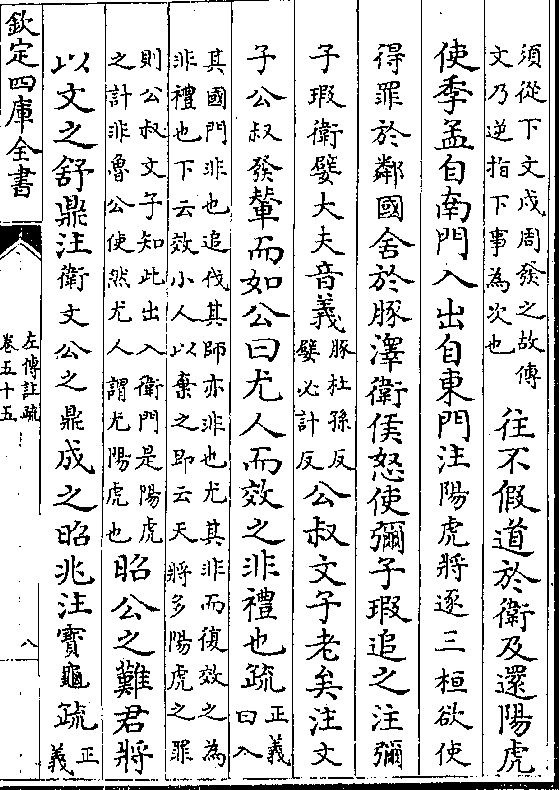 須從下文成周發之故傳
文乃逆指下事為次也
往不假道於衛及還陽虎
使季孟自南門入出自東門注陽虎將逐三桓欲使
得罪於鄰國舍於豚澤衛侯怒使彌子瑕追之注彌
子瑕衛嬖大夫音義
豚杜孫反
嬖必計反
公叔文子老矣注文
子公叔發輦而如公曰尤人而效之非禮也疏
正義
曰入
其國門非也追伐其師亦非也尤其非而復效之為
非禮也下云效小人以棄之即云天將多陽虎之罪
則公叔文子知此出入衛門是陽虎
之計非魯公使然尤人謂尤陽虎也
昭公之難君將
以文之舒鼎注衛文公之鼎成之昭兆注寶龜疏
正
義
欽定四庫全書
左傳註疏
卷五十五
八